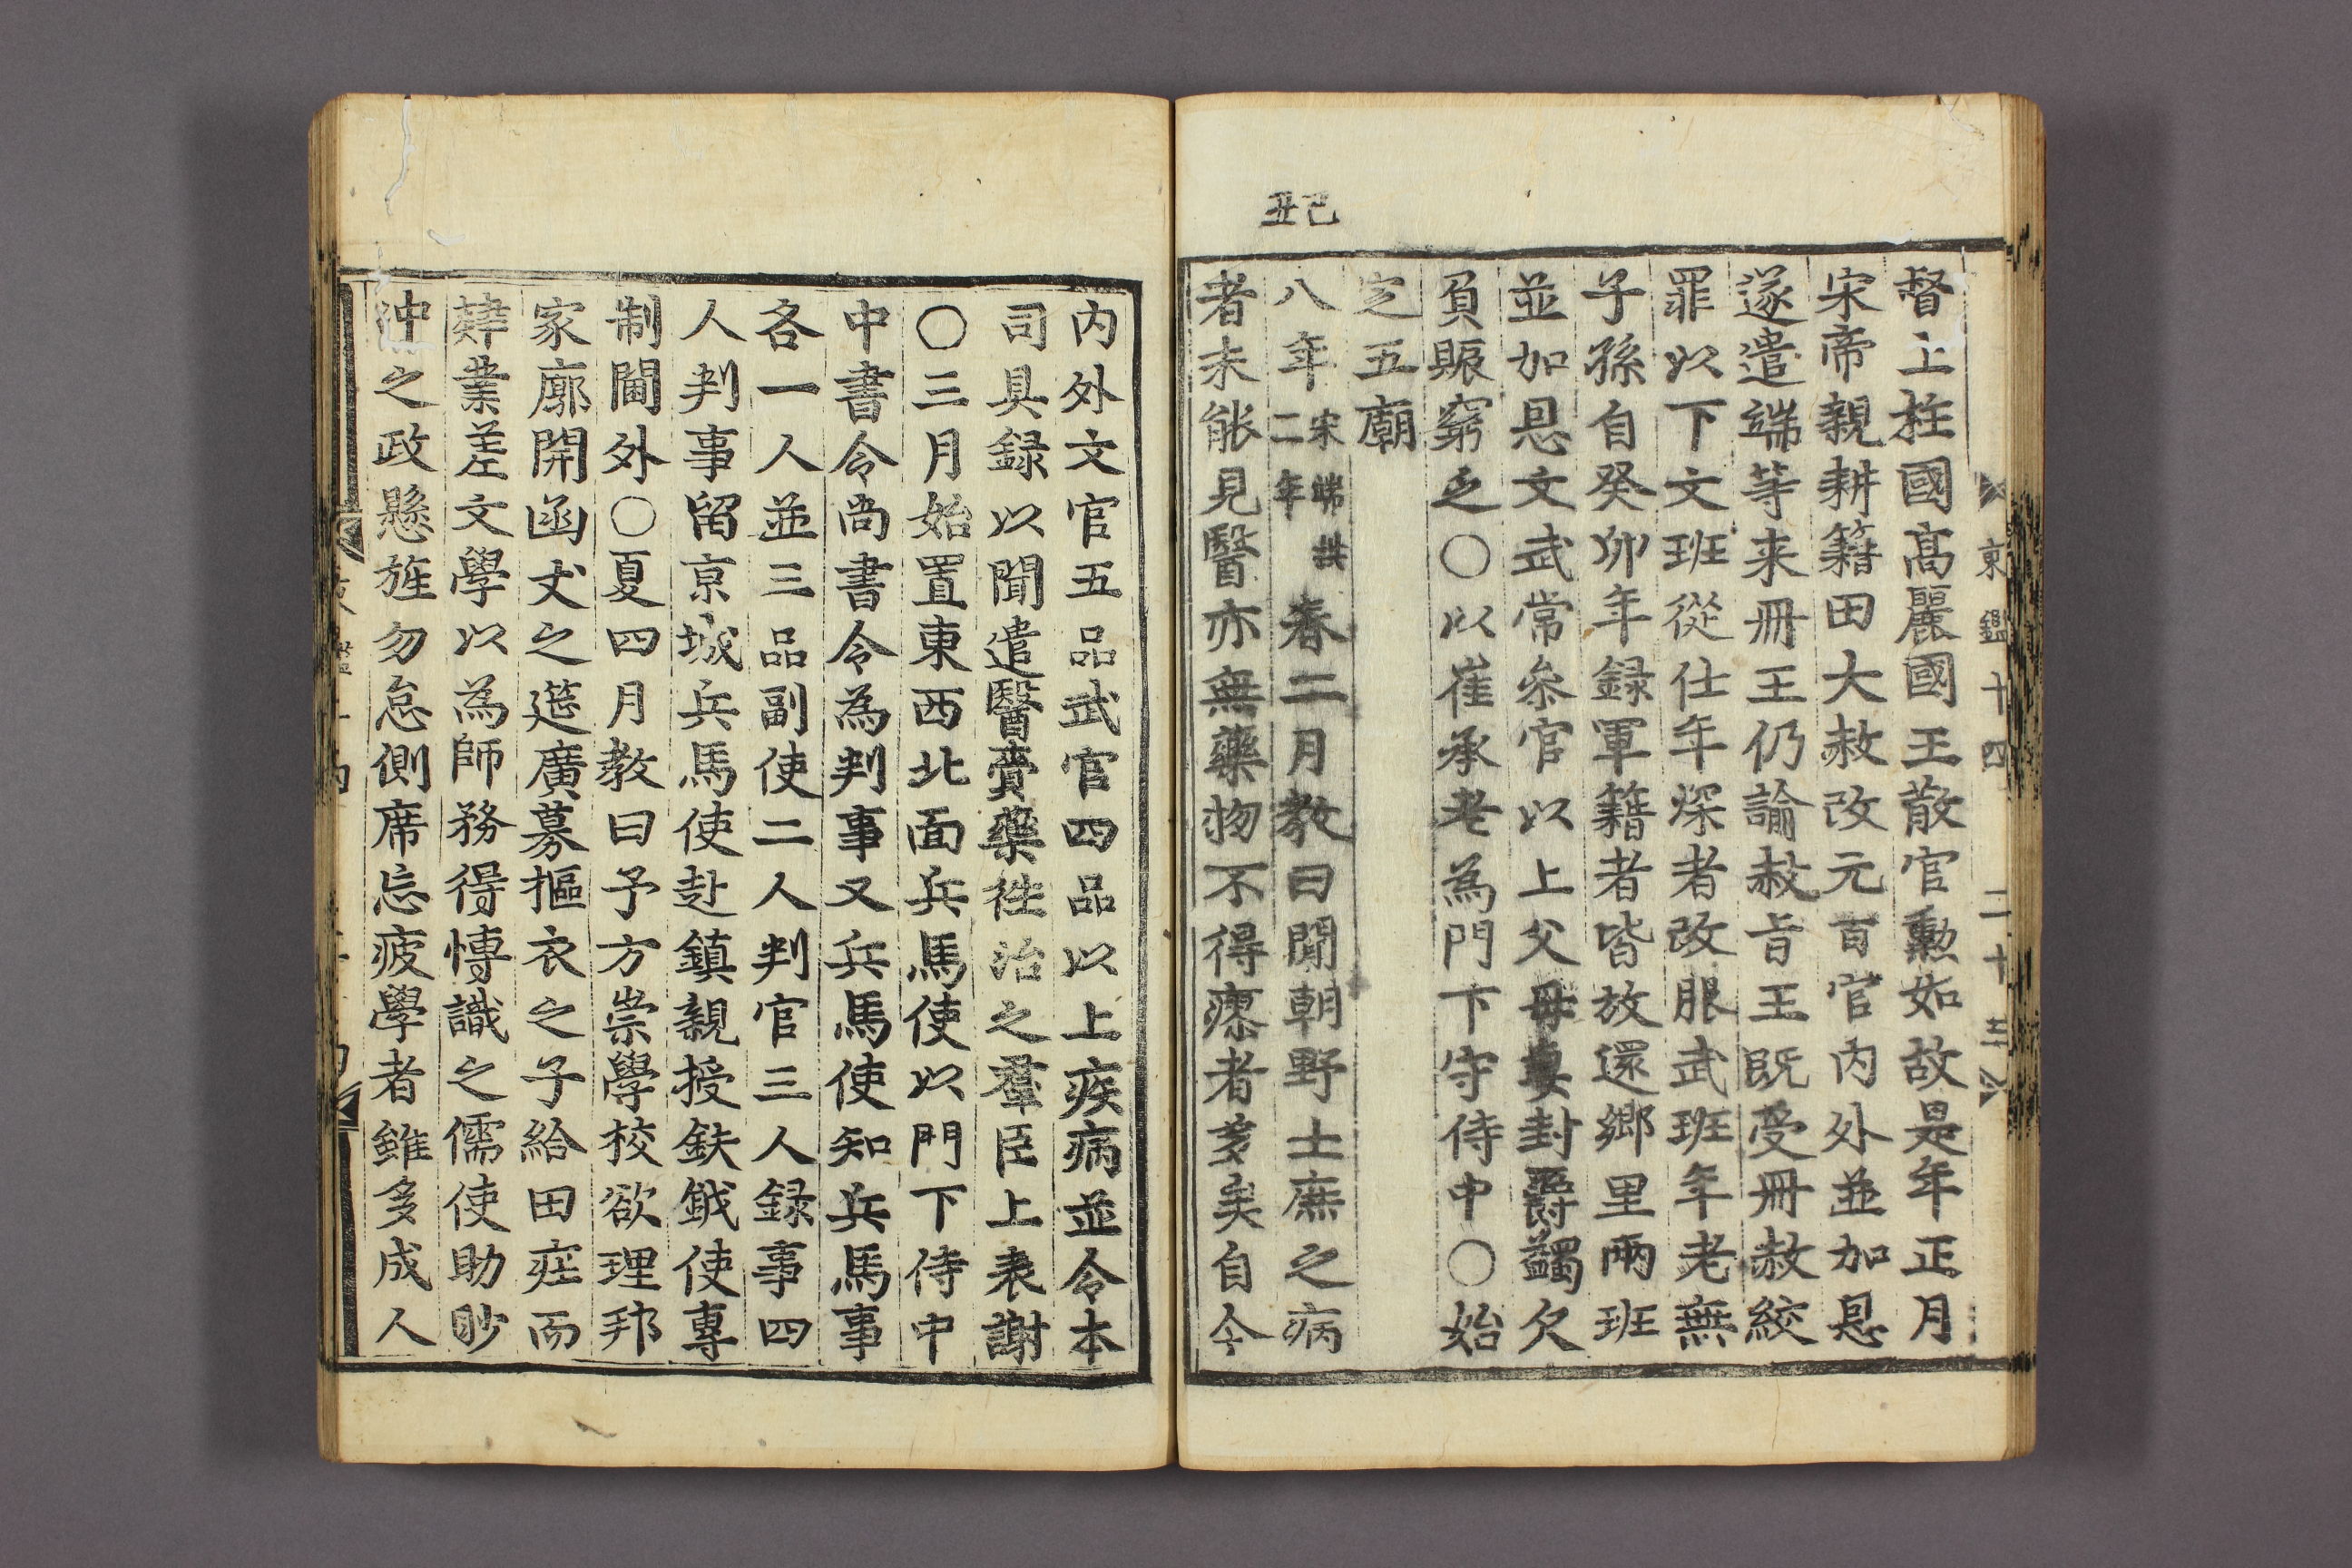 東鑑十四 二十三
督上柱國高麗國王散官勲如故是年正月
宋帝親耕籍田大赦改元百官內外並加恩
遂遣端等来冊王仍諭赦旨王既受冊赦絞
罪以下文班從仕年深者改服武班年老無
子孫自癸卯年録軍籍者皆放還鄉里兩班
並加恩文武常叅官以上父母妻封爵蠲欠
負賑窮乏○以崔承老為門下守侍中○始
定五廟
己丑
八年宋端拱二年春二月教曰聞朝野士庶之病
者未能見醫亦無藥物不得瘳者多矣自今
內外文官五品武官四品以上疾病並令本
司具録以聞遣醫賫藥徃治之羣臣上表謝
○三月始置東西北面兵馬使以門下侍中
中書令尚書令為判事又兵馬使知兵馬事
各一人並三品副使二人判官三人録事四
人判事留京城兵馬使赴鎮親授鈇鉞使專
制閫外○夏四月教曰予方崇學校欲理邦
家廓開函丈之筵廣募摳衣之子給田庄而
肄業差文學以為師務得博識之儒使助眇
沖之政懸旌勿怠側席忘疲學者雖多成人